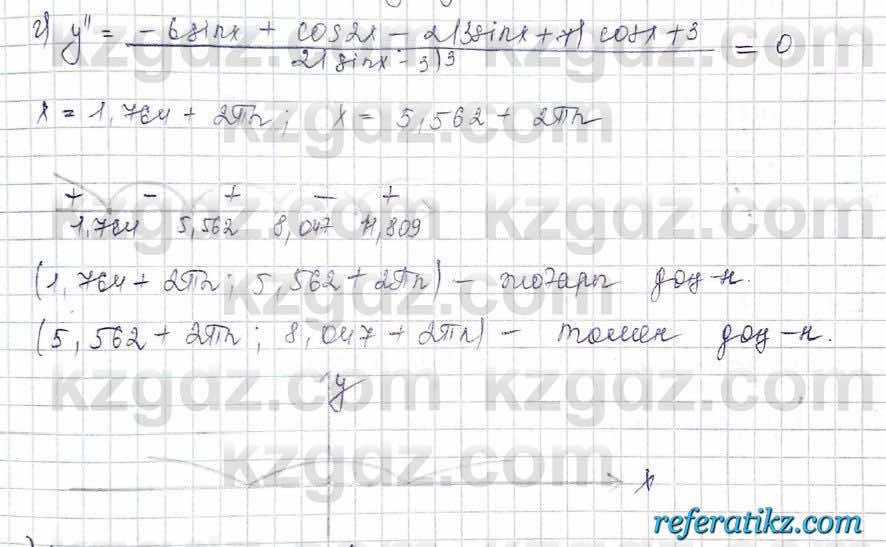 2) y'' = - 6 sinx + cos2x - 2(3sinx + 7) cosx + 3 / 2(sinx - 3)^3 = 0
x = 1,764 + 2πn; x = 5,562 + 2πn
+ − + − +
1,764 5,562 8,047 11,809
(1,764 + 2πn; 5,562 + 2πn) − жоғары дөң-н.
(5,562 + 2πn; 8,047 + 2πn) − төмен дөң-н.
y
x
kzgdz.com
referatikz.com